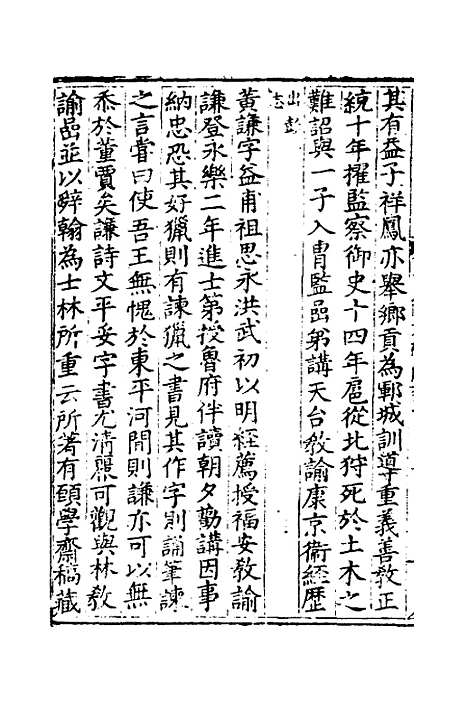 其有益子祥鳳亦舉鄉貢為鄆城訓導重義善教正
統十年擢監察御史十四年扈從北狩死於土木之
難詔與一子入胄監嵒弟講天台教諭康京衞經歷
出彭志
黄謙字益甫祖思永洪武初以明經薦授福安教諭
謙登永樂二年進士第授魯府伴讀朝夕勤講因事
納忠恐其好獵則有諫獵之書見其作字則誦筆諫
之言嘗曰使吾王無愧於東平河間則謙亦可以無
忝於董賈矣謙詩文平妥字書尤清麗可觀與林教
諭嵒並以辭翰為士林所重云所著有頤學齋稿藏